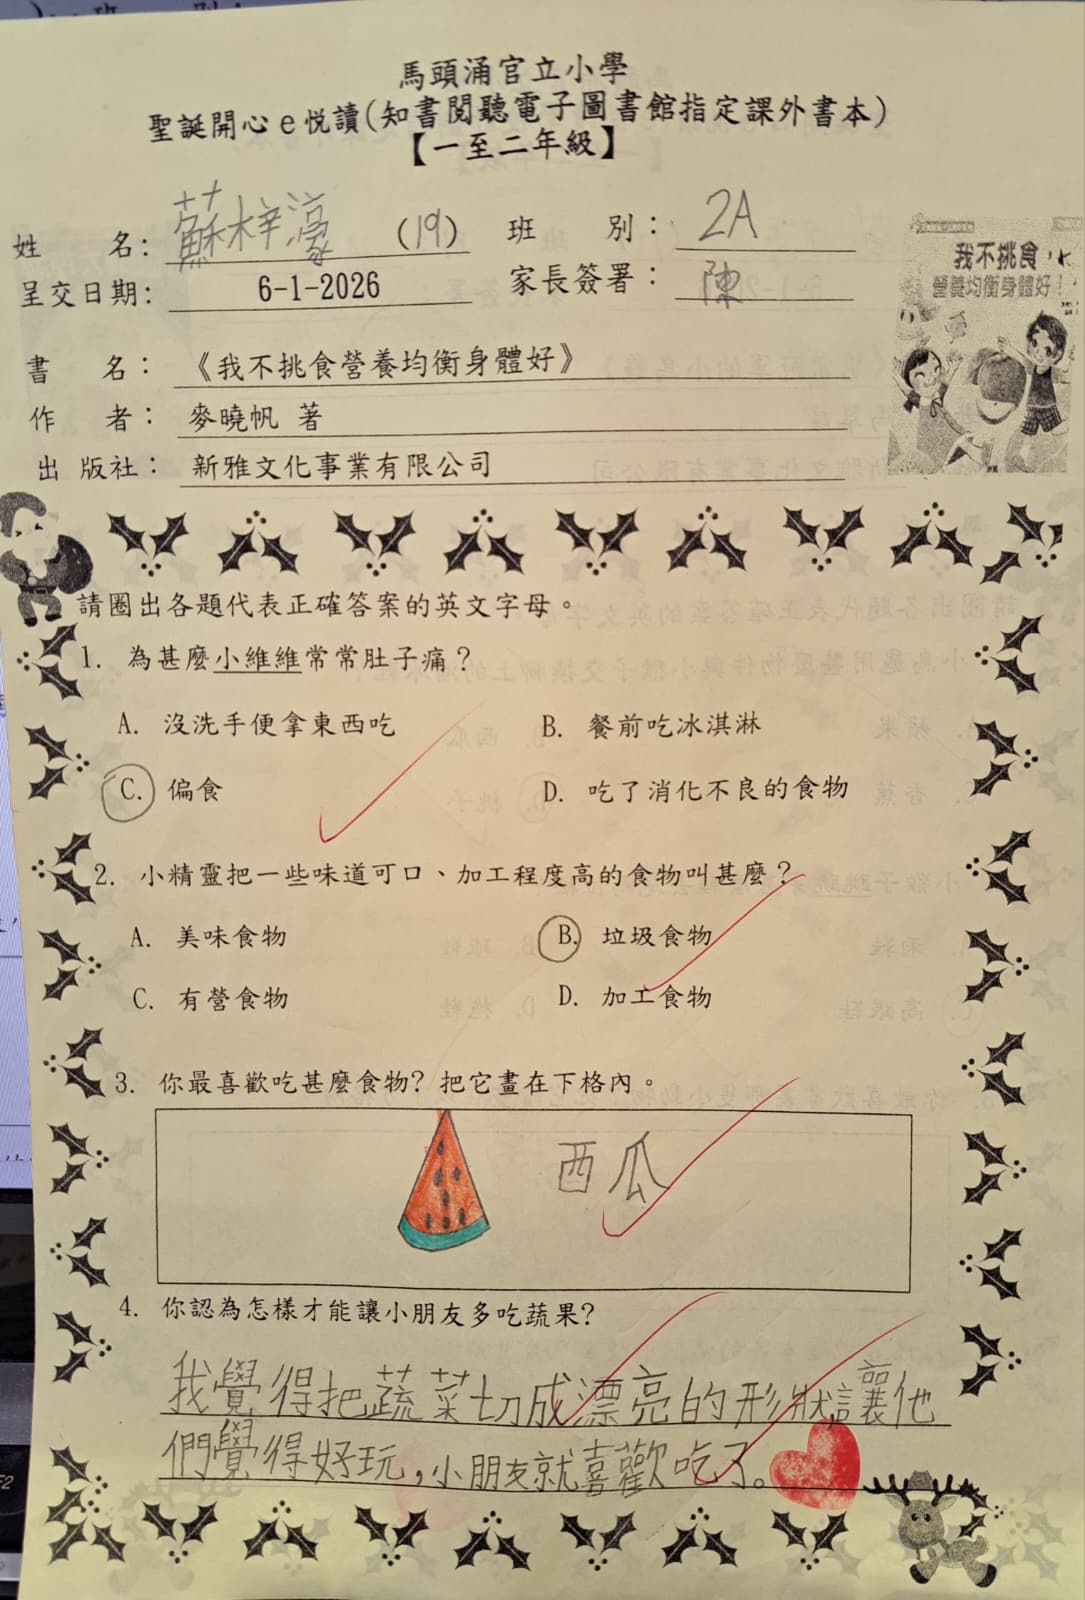 馬頭涌官立小學
聖誕開心e悅讀(知書閱聽電子圖書館指定課外書本)
【一至二年級】
姓 名: 蘇梓濠 (19) 班 別: 2A
呈交日期: 6-1-2026 家長簽署: 陳
我不挑食
營養均衡身體好!
書 名: 《我不挑食營養均衡身體好》
作 者: 麥曉帆 著
出 版社: 新雅文化事業有限公司
請圈出各題代表正確答案的英文字母。
1. 為甚麼小維維常常肚子痛?
A. 沒洗手便拿東西吃 B. 餐前吃冰淇淋
C. 偏食 D. 吃了消化不良的食物
2. 小精靈把一些味道可口、加工程度高的食物叫甚麼?
A. 美味食物 B. 垃圾食物
C. 有營食物 D. 加工食物
3. 你最喜歡吃甚麼食物? 把它畫在下格內。
西瓜
4. 你認為怎樣才能讓小朋友多吃蔬果?
我覺得把蔬菜切成漂亮的形狀,讓他
們覺得好玩,小朋友就喜歡吃了。
F2